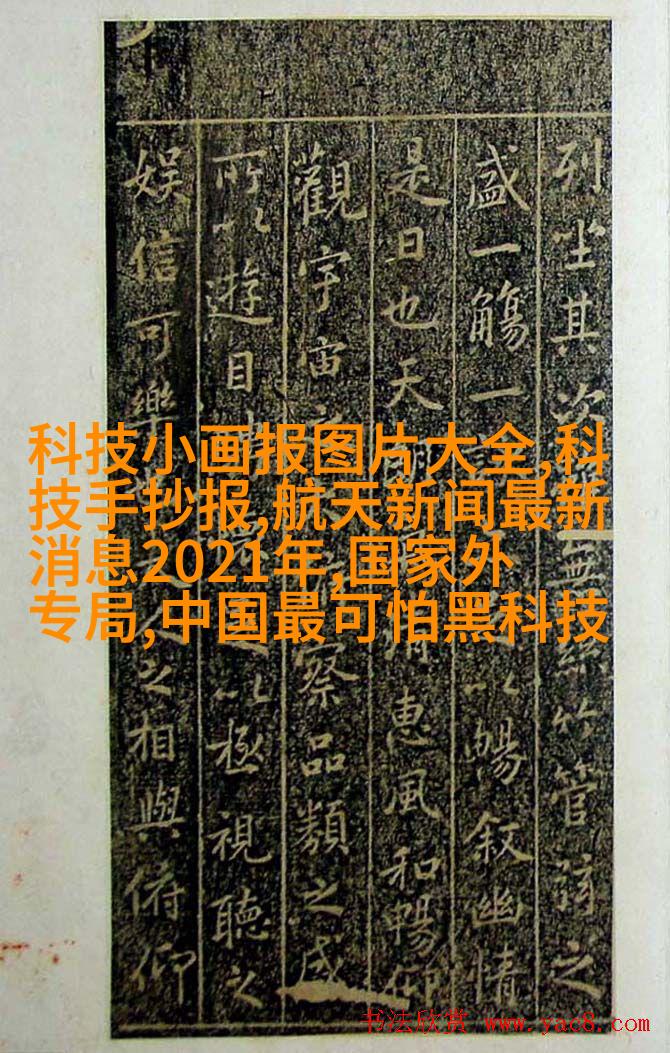 列坐其無絲竹管弦之
盛一觴一以暢叙幽情
是日也天清惠風和暢仰
觀宇宙之察品類之盛
所以遊目以極視聽之
娱信可樂人之相與俯仰
科技小画报图片大全,科
技手抄报,航天新闻最新
消息2021年,国家外
专局,中国最可怕黑科技
书法欣赏 www.yac8.com